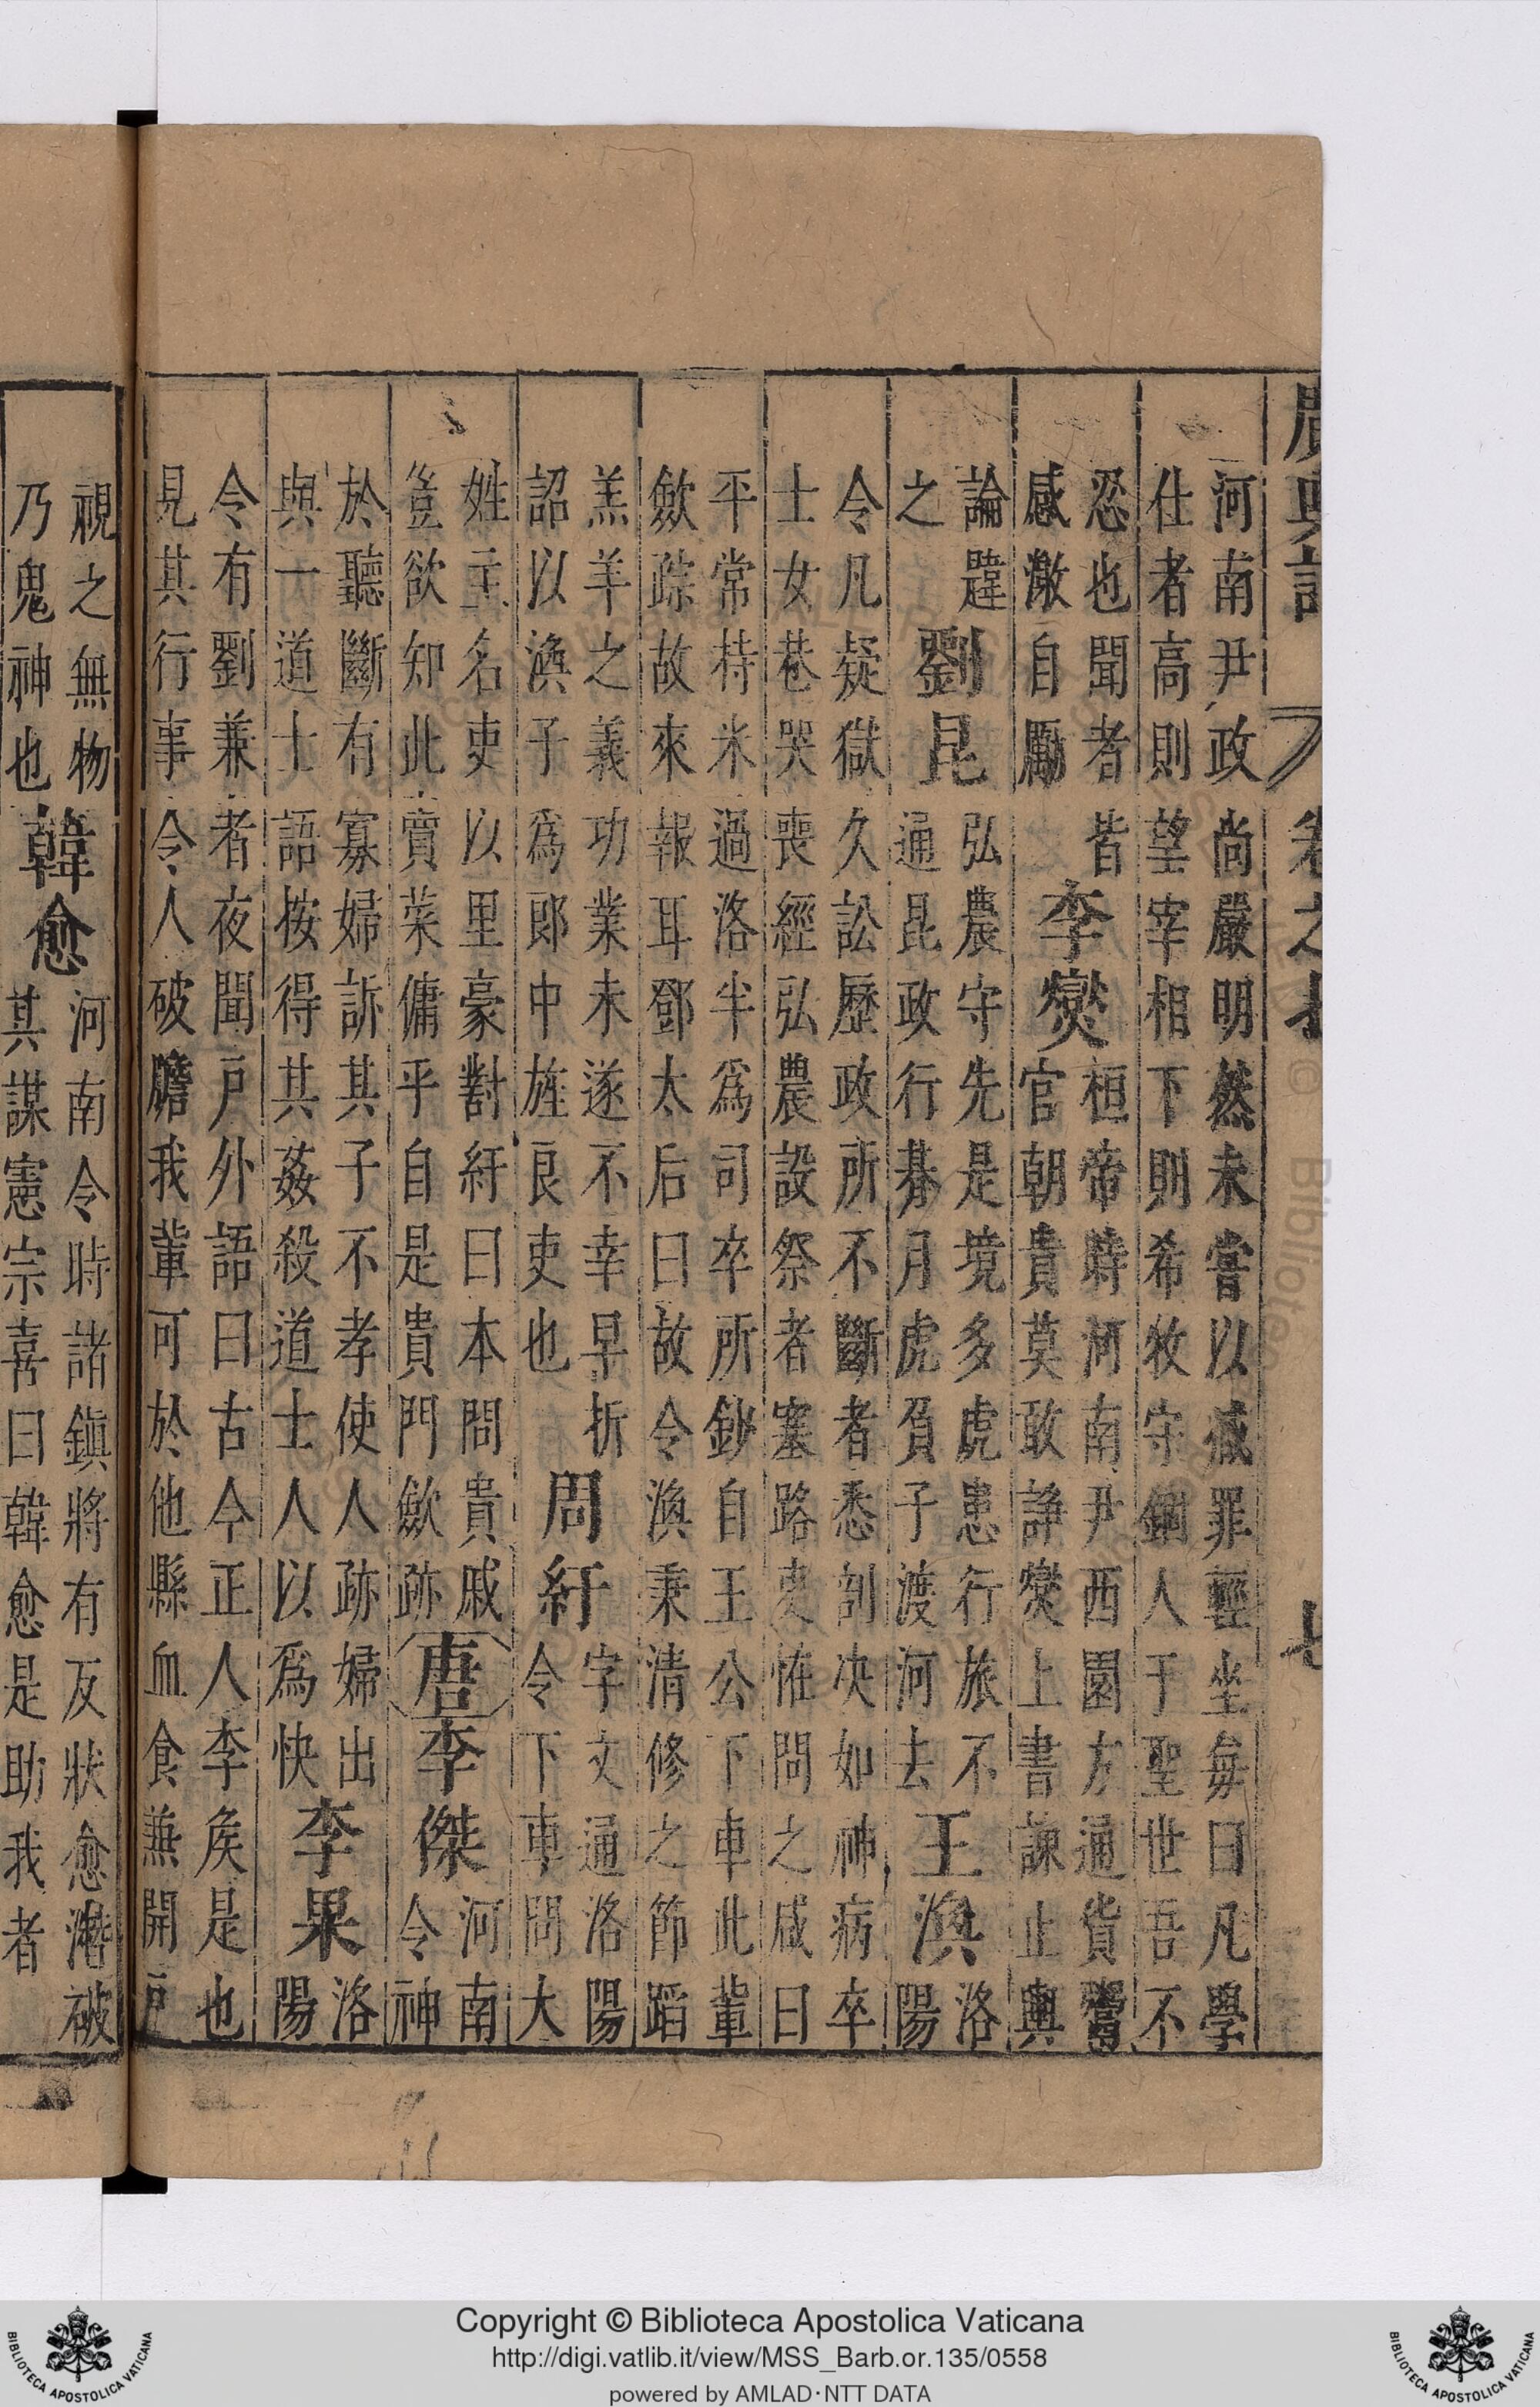 廣輿記 卷之 七
河南尹政尚嚴明然未嘗以臧罪輕坐每曰凡學
仕者高則望宰相下則希牧守錮人于聖世吾不
忍也聞者皆
感激自勵
李燮
桓帝時河南尹西園方通貨鬻
官朝貴莫敢諍燮上書諫止輿
論韙
之
劉昆
弘農守先是境多虎患行旅不
通昆政行朞月虎負子渡河去
王渙
洛
陽
令凡疑獄久訟歷政所不斷者悉剖决如神病卒
士女巷哭喪經弘農設祭者塞路吏恠問之咸曰
平常持米過洛半爲司卒所鈔自王公下車此輩
歛踪故來報耳鄧太后曰故令渙秉清修之節蹈
羔羊之義功業未遂不幸早折
詔以渙子爲郎中旌良吏也
周紆
字文通洛陽
令下車問大
姓主名吏以里豪對紆曰本問貴戚
豈欲知此賣菜傭乎自是貴門歛跡
唐
李傑
河南
令神
於聽斷有寡婦訴其子不孝使人跡婦出
與一道士語按得其姦殺道士人以爲快
李果
洛
陽
令有劉兼者夜聞戸外語曰古今正人李矦是也
見其行事令人破膽我輩可於他縣血食無開戸
視之無物
乃鬼神也
韓愈
河南令時諸鎮將有反狀愈潛被
其謀憲宗喜曰韓愈是助我者
Copyright © Biblioteca Apostolica Vaticana
http://digi.vatlib.it/view/MSS_Barb.or.135/0558
powered by AMLAD·NTT DATA
BIBLIOTECA APOSTOLICA VATICANA
BIBLIOTECA APOSTOLICA VATICANA